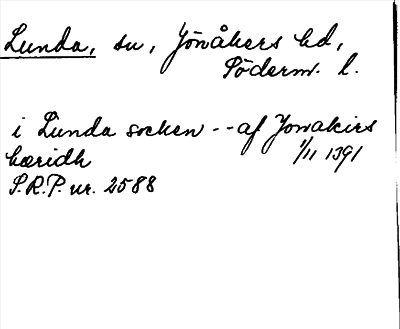 Lunda, sn, Jönåkers hd,
Söderm. l.
i Lunda socken -- af Jonakirs
hæridh 1/11 1391
S.R.P. nr. 2588